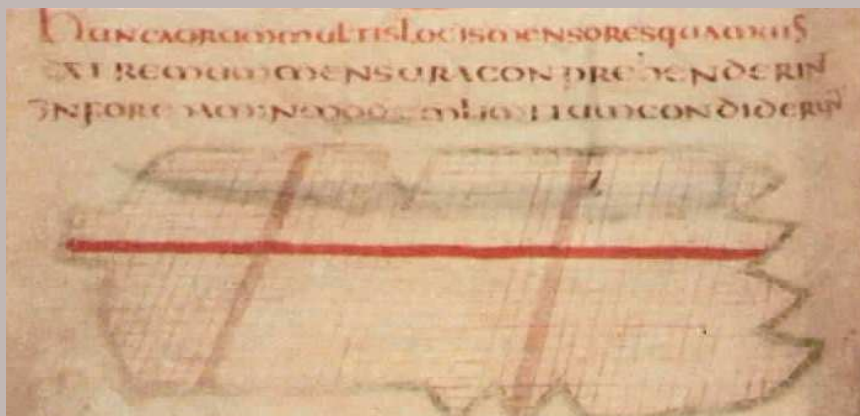 huncagrummultislocismensoresquamuis
extremummensuraconprehenderin
informaminmod condiderin